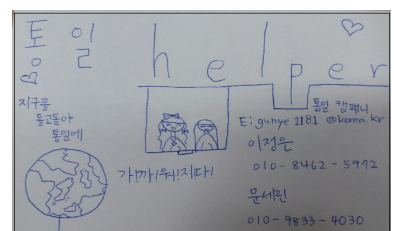 통일
helper
지구를
돌고돌아
통일에
가!까!워!지다!
통일 캠패니
E: gunye 1181 @korea.kr
이정은
010-8462-5972
문세린
010-9833-4030